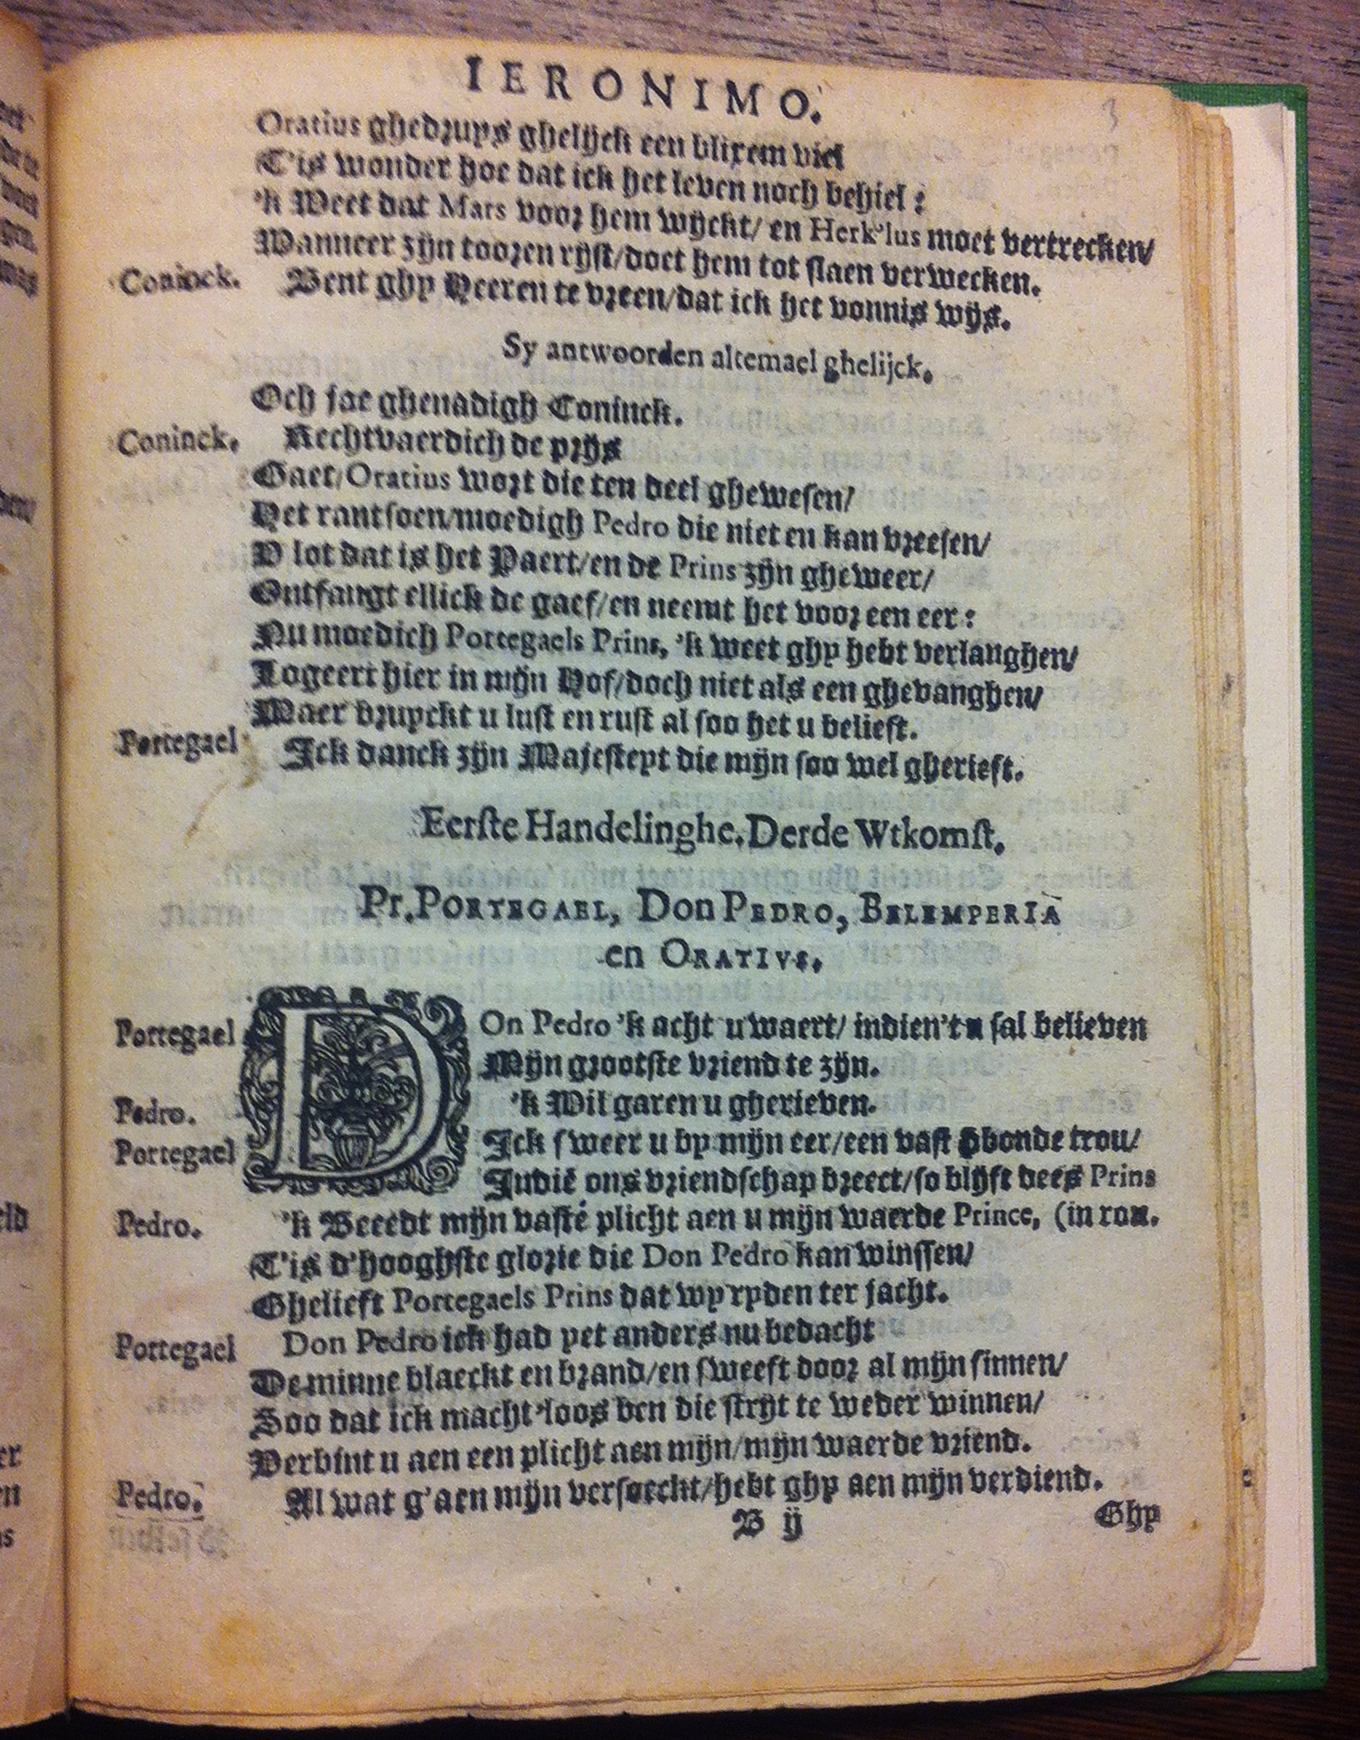 IERONIMO.
3
Oratius ghedruys ghelijck een blixem viel
T'is wonder hoe dat ick het leven noch behiel:
'k Weet dat Mars voor hem wijckt/ en Herk'lus moet vertrecken/
Wanneer zijn tooren rijst/doet hem tot slaen verwecken.
Coninck. Bent ghy Heeren te vreen/dat ick het vonnis wijs.
Sy antwoorden altemael ghelijck.
Och jae ghenadigh Coninck.
Coninck. Rechtvaerdich de prijs
Gaet/Oratius wort die ten deel ghewesen/
Het rantsoen/moedigh Pedro die niet en kan vreesen/
D lot dat is het Paert/en de Prins zijn gheweer/
Ontfangt ellick de gaef/en neemt het voor een eer:
Nu moedich Portegaels Prins, 'k weet ghy hebt verlanghen/
Logeert hier in mijn Hof/doch niet als een ghevanghen/
Maer bruyckt u lust en rust al soo het u belieft.
Portegael Ick danck zijn Majesteyt die mijn soo wel gherieft.
Eerste Handelinghe. Derde Wtkomst.
Pr. PORTEGAEL, Don PEDRO, BELEMPERIA
en ORATIVS.
Portegael DOn Pedro 'k acht u waert/ indien't u sal believen
Mijn grootste vriend te zijn.
Pedro. 'k Wil garen u gherieven.
Portegael Ick sweer u by mijn eer/een vast bonde trou/
Indië ons vriendschap breect/so blijft dees Prins
Pedro. 'k Beeedt mijn vasté plicht aen u mijn waerde Prince, (in rou.
T'is d'hooghste glorie die Don Pedro kan winssen/
Ghelieft Portegaels Prins dat wy ryden ter jacht.
Portegael Don Pedro ick had yet anders nu bedacht
De minne blaeckt en brand/en sweeft door al mijn sinnen/
Soo dat ick macht'loos ben die strijt te weder winnen/
Verbint u aen een plicht aen mijn/mijn waerde vriend.
Pedro. Al wat g'aen mijn versoeckt/hebt ghy aen mijn verdiend.
B ij
Ghy